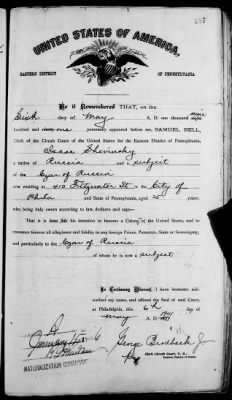 UNITED STATES OF AMERICA,
EASTERN DISTRICT OF PENNSYLVANIA
Be it Remembered THAT, on the
Sixth day of May A. D. one thousand nine
hundred and one personally appeared before me, SAMUEL BELL,
Clerk of the Circuit Court of the United States for the Eastern District of Pennsylvania,
Isaac
a native of Russia and a subject
of the Czar of Russia
was residing at 410 St in City of
Phila and State of Pennsylvania, aged 25 years,
who, being duly sworn according to law, declares and says—
That it is bona fide his intention to become a Citizen of the United States, and to
renounce forever all allegiance and fidelity to any foreign Prince, Potentate, State or Sovereignty,
and particularly to the Czar of Russia
of whom he is now a subject
In Testimony Whereof, I have hereunto
subscribed my name, and affixed the Seal of said Court,
at Philadelphia, this 6th day of
May A. D. 1901
George Brodbeck Jr
Clerk Circuit Court, U. S.,
Eastern District of Penna.
NATURALIZATION